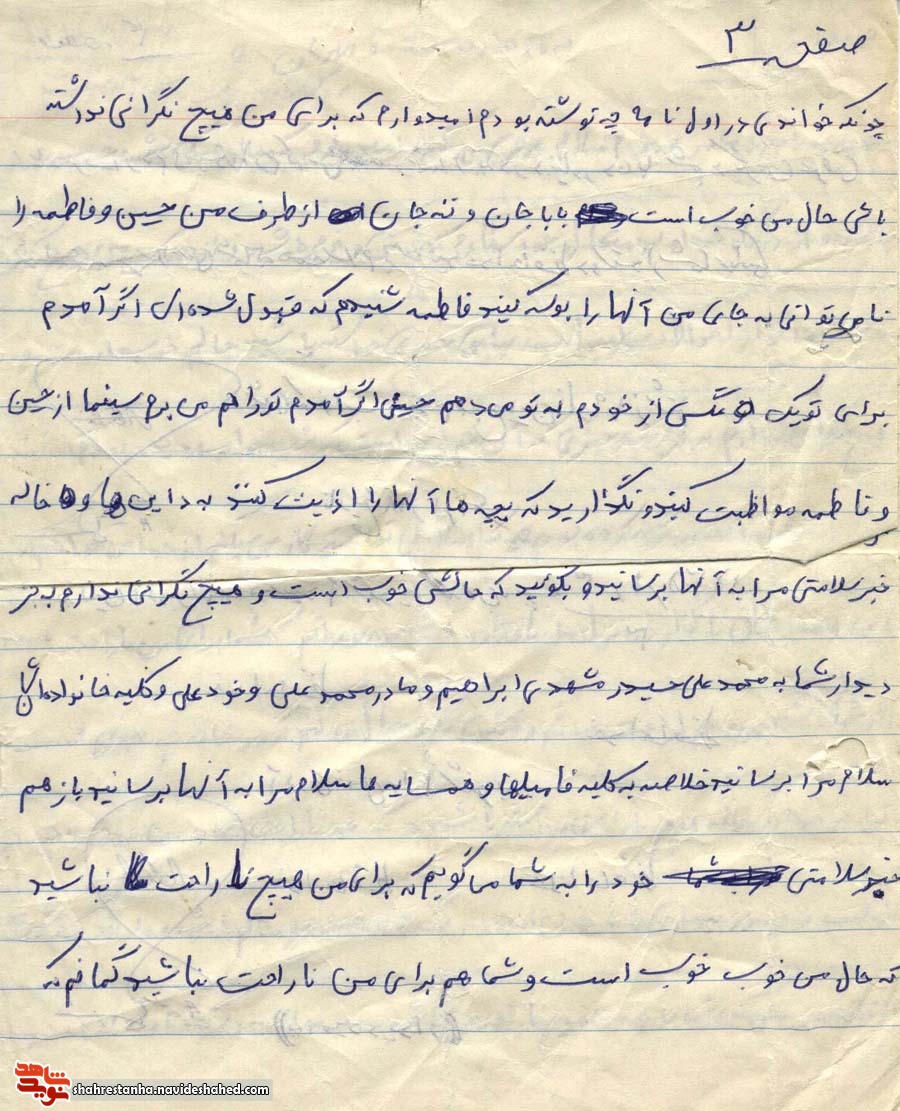 صفحه ۳
چونکه خواندی در اول نامه چه نوشته بودم امیدوارم که برای من هیچ نگرانی نداشته
باشی حال من خوب است بابا جان و ننه جان از طرف من حسین و فاطمه را
تا می توانی به جای من آنها را بوسه کنید فاطمه شنیدم که قبول شده ای اگر آمدم
برای تو یک عکس از خودم به تو می دهم حسین اگر آمدم تو را هم می برم سینما از حسین
و فاطمه مواظبت کنید و نگذارید که بچه ها آنها را اذیت کنند به دایی ها و خاله
خبر سلامتی مرا به آنها برسانید و بگوئید که حالش خوب است و هیچ نگرانی ندارم به جز
دیدار شما به محمد علی حیدر مشهدی ابراهیم و مادر محمد علی و خود علی و کلیه خانواده شان
سلام مرا برسانید خلاصه به کلیه فامیلها و همسایه ها سلام مرا به آنها برسانید باز هم
خبر سلامتی خود را به شما می گویم که برای من هیچ ناراحت نباشید
که حال من خوب خوب است و شما هم برای من ناراحت نباشید گمانم که
نوید شاهد
shahrestanha.navideshahed.com